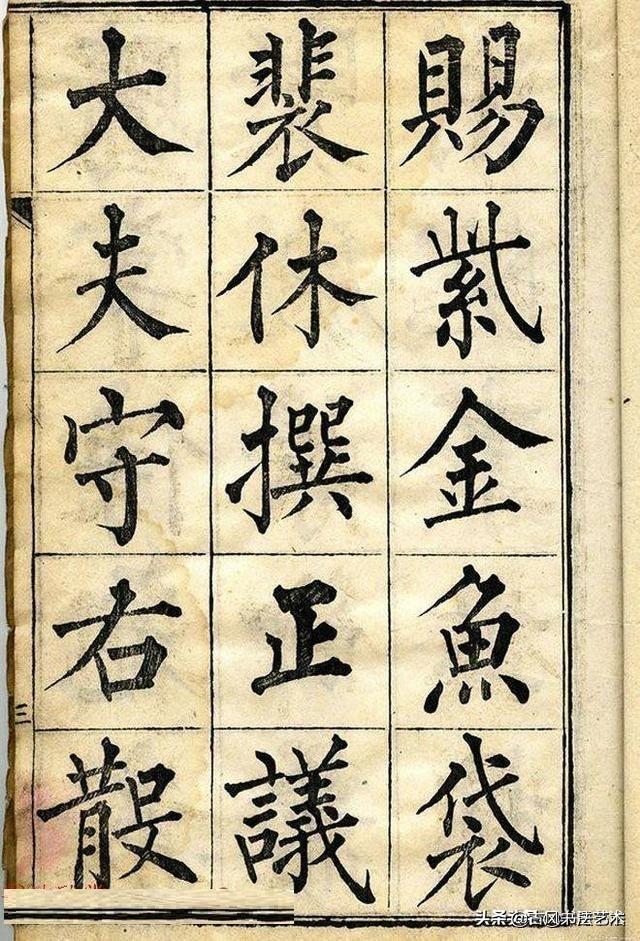 賜紫金魚袋
裴休撰正議
大夫守右散
三
头条@古风书法艺术